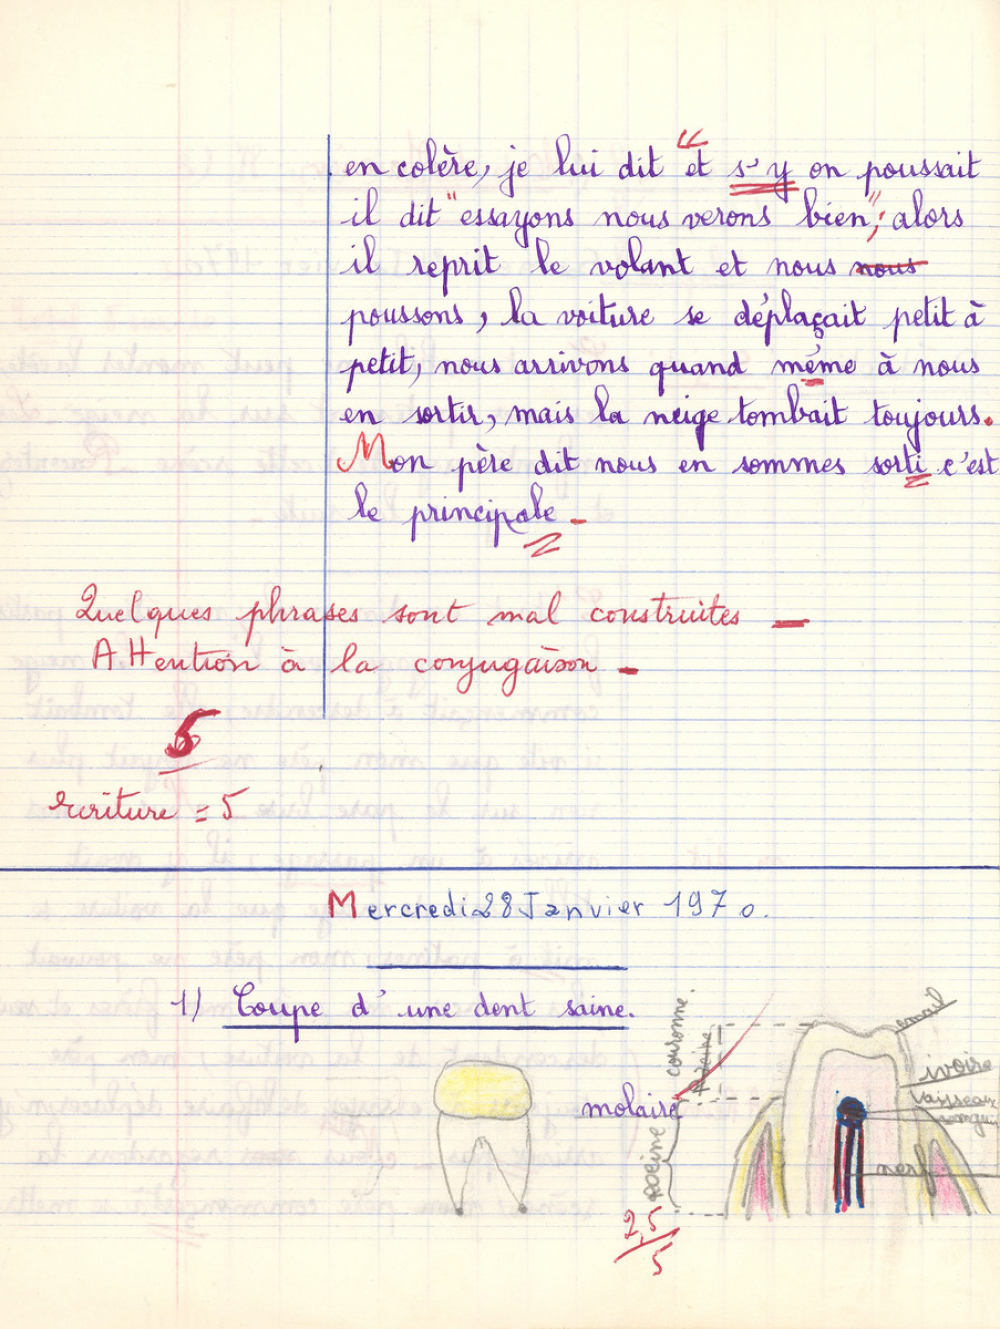 en colère, je lui dit " et s'y on poussait
il dit "essayons nous verons bien"; alors
il reprit le volant et nous nous
poussons, la voiture se déplaçait petit à
petit, nous arrivons quand même à nous
en sortir, mais la neige tombait toujours.
Mon père dit nous en sommes sorti c'est
le principale.
Quelques phrases sont mal construites
Attention à la conjugaison
5
écriture = 5
Mercredi 28 Janvier 1970.
1) Coupe d'une dent saine.
émail
couronne.
racine
ivoire
vaisseau
sanguin
molaire
racine
nerf
2,5
5